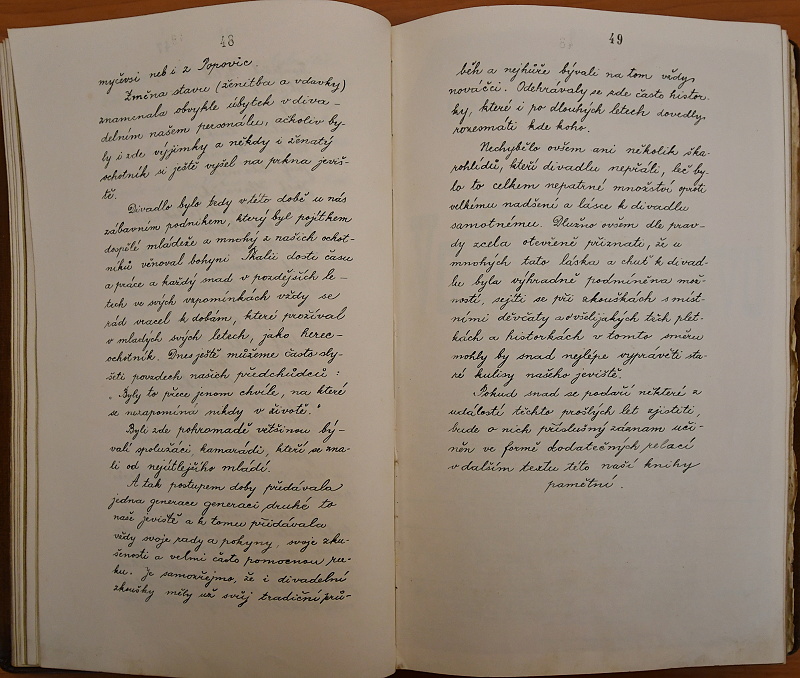 48
myčevsi neb i z Popovic.
Změna stavu (ženitba a vdavky)
znamenala obvykle úbytek v diva-
delním našem personálu, ačkoliv by-
ly i zde vyjímky a někdy i ženatý
ochotník si ještě vyšel na prkna jeviš-
tě.
Divadlo bylo tedy v této době u nás
zábavním podnikem, který byl pojítkem
dospělé mládeže a mnohý z našich ochot-
níků věnoval bohyni Thalii dosti času
a práce a každý snad v pozdějších le-
tech ve svých vzpomínkách vždy se
rád vracel k dobám, které prožíval
v mladých svých letech, jako herec-
ochotník. Dnes ještě můžeme často sly-
šeti povzdech našich předchůdců :
"Byly to přece jenom chvíle, na které
se nezapomíná nikdy v životě."
Byli zde pohromadě většinou bý-
valí spolužáci, kamarádi, kteří se zna-
li od nejútlejšího mládí.
A tak postupem doby předávala
jedna generace generaci druhé to
naše jeviště a k tomu přidávala
vždy svoje rady a pokyny, svoje zku-
šenosti a velmi často pomocnou ru-
ku. Je samozřejmo, že i divadelní
zkoušky měly už svůj tradiční prů-
49
běh a nejhůře bývali na tom vždy
nováčci. Odehrávaly se zde často histor-
ky, které i po dlouhých letech dovedly
rozesmáti kde koho.
Nechybělo ovšem ani několik ška-
rohlídů, kteří divadlu nepřáli, leč by-
lo to celkem nepatrné množství oproti
velkému nadšení a lásce k divadlu
samotnému. Dlužno ovšem dle prav-
dy zcela otevřeně přiznati, že u
mnohých tato láska a chuť k divad-
lu byla výhradně podmíněna mož-
ností, sejíti se při zkouškách s míst-
ními děvčaty a o všelijakých těch plet-
kách a historkách v tomto směru
mohly by snad nejlépe vyprávěti sta-
ré kulisy našeho jeviště.
Pokud snad se podaří některé z
událostí těchto prošlých let zjistiti,
bude o nich příslušný záznam uči-
něn ve formě dodatečných relací
v dalším textu této naší knihy
pamětní.